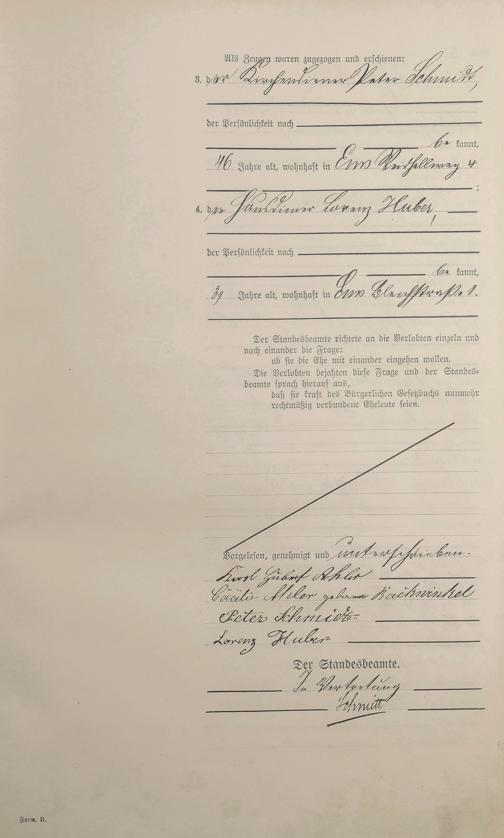 Als Zeugen waren zugezogen und erschienen:
3. der Kirchendiener Peter Schmidt,
der Persönlichkeit nach
be kannt,
46 Jahre alt, wohnhaft in Ems 4
;
4. der Hausdiener Lorenz Huber,
der Persönlichkeit nach
be kannt,
39 Jahre alt, wohnhaft in Ems Bleichstraße 1.
Der Standesbeamte richtete an die Verlobten einzeln und
nach einander die Frage:
ob sie die Ehe mit einander eingehen wollen.
Die Verlobten bejahten diese Frage und der Standes-
beamte sprach hierauf aus,
daß sie kraft des Bürgerlichen Gesetzbuchs nunmehr
rechtmäßig verbundene Eheleute seien.
Vorgelesen, genehmigt und unterschrieben.
Karl Hubert Ahler
Cäcilie Ahler geborene Backwinkel
Peter Schmidt
Lorenz Huber
Der Standesbeamte.
In Vertretung
Schmitt
Form. B.